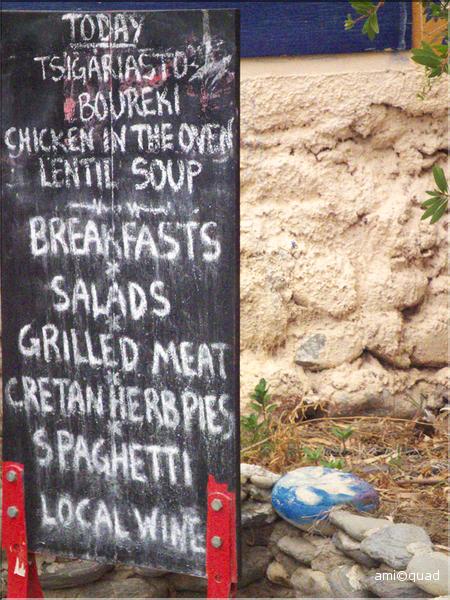 TODAY
TSIGARIASTO
BOUREKI
CHICKEN IN THE OVEN
LENTIL SOUP
BREAKFASTS
SALADS
GRILLED MEAT
CRETAN HERB PIES
SPAGHETTI
LOCAL WINE
ami©quad